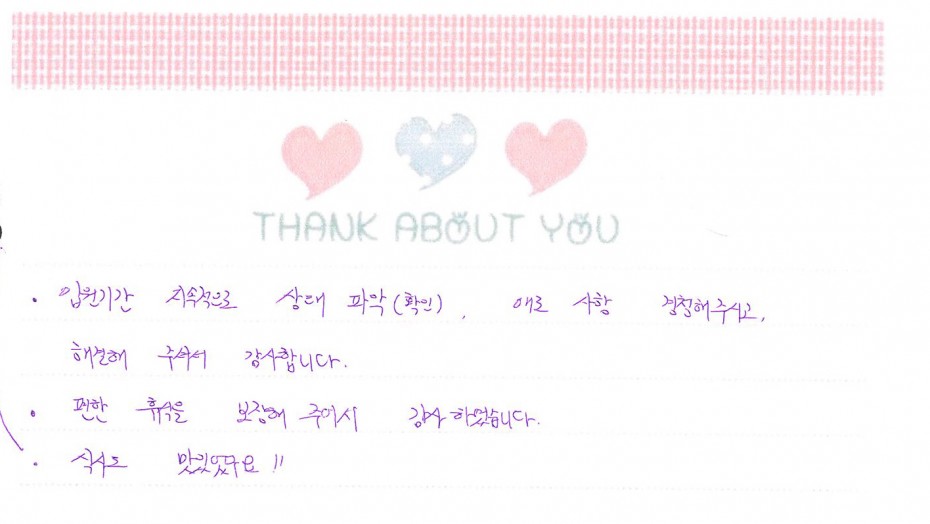 THANK ABOUT YOU
· 입원기간 지속적으로 상태 파악(확인), 애로 사항 경청해주시고,
해결해 주셔서 감사합니다.
· 편한 휴식을 보장해 주어서 감사하였습니다.
· 식사도 맛있었구요!!